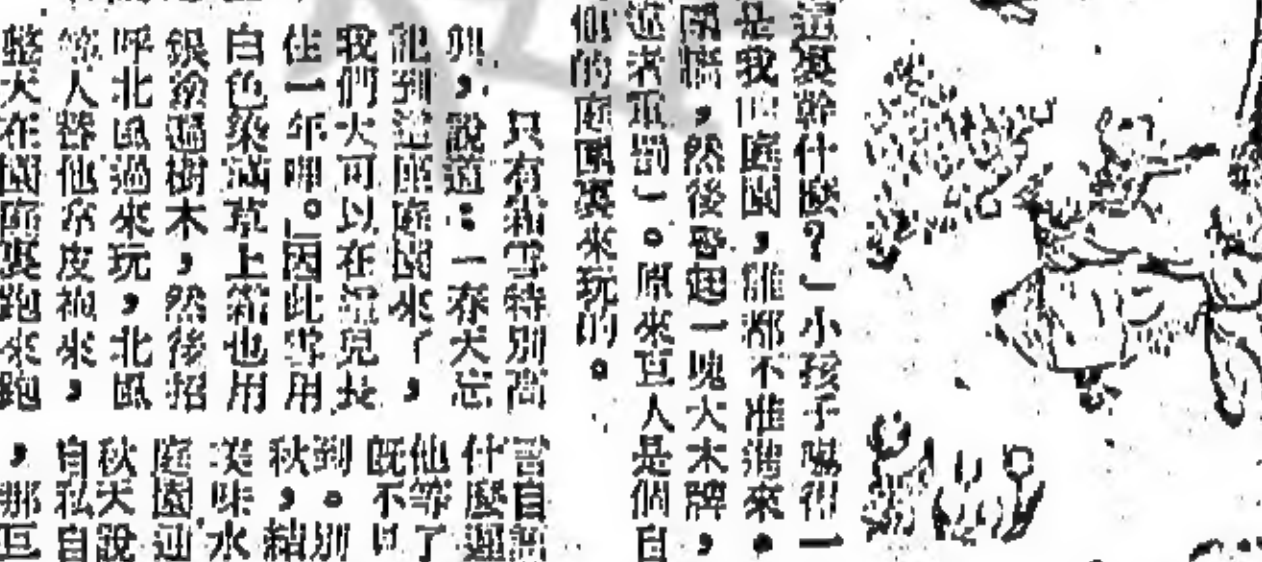 這裏幹什麼？」小孩子嚇得一
是我的庭園，誰都不准進來。
圍牆，然後竪起一塊大木牌，
違者重罰」。原來巨人是個自
他的庭園裏來玩的。
只有霜雪特別高
興，說道：「春天忘
記到這座庭園來了，
我們大可以在這兒長
住一年啦。」因此雪用
白色染滿草上霜也用
銀塗過樹木，然後招
呼北風過來玩，北風
等人替他穿皮袍來，
整天在園庭裏跑來跑
言自語
什麼還
他等了
既不見
到。別
秋，結
美味水
庭園迎
秋天說
自私自
，那巨